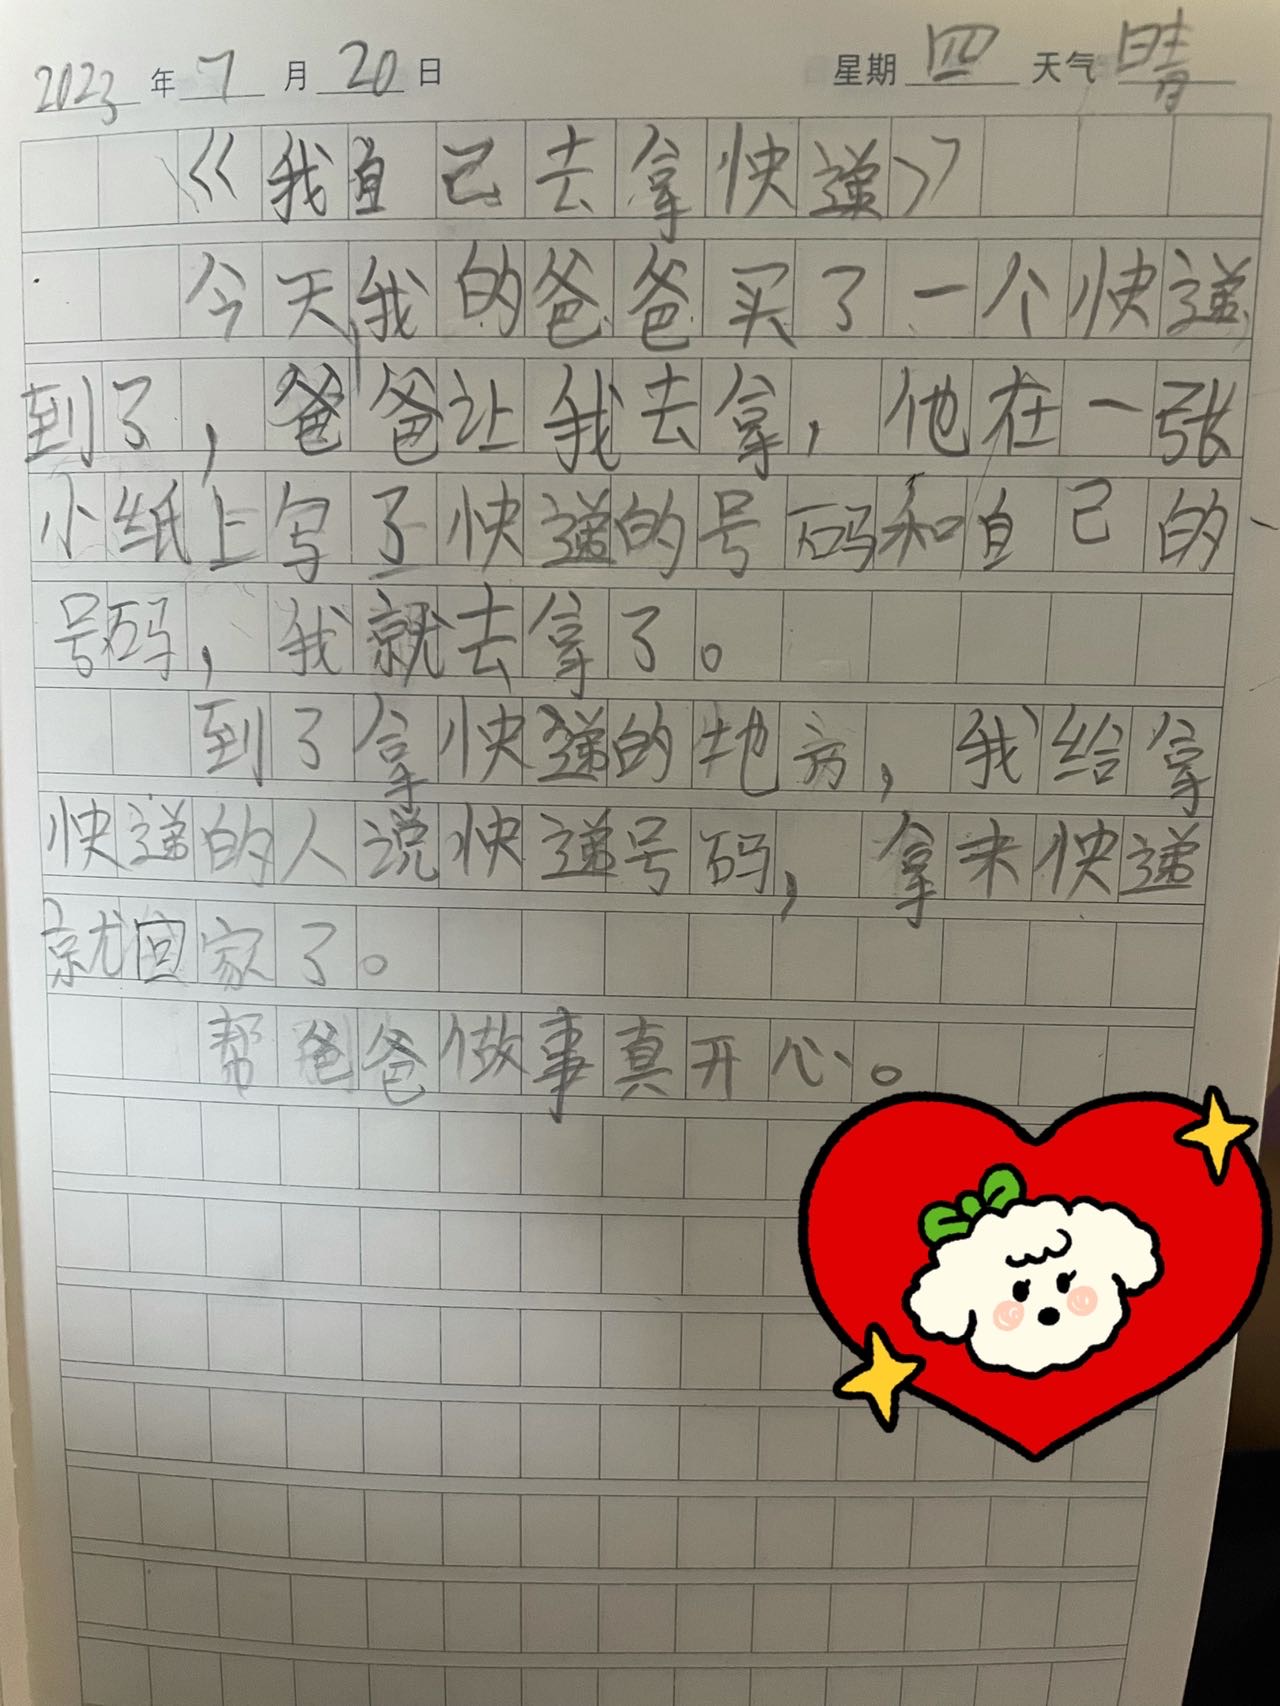 2023年7月20日 星期四 天气晴
《我自己去拿快递》
今天我的爸爸买了一个快递
到了，爸爸让我去拿，他在一张
小纸上写了快递的号码和自己的
号码，我就去拿了。
到了拿快递的地方，我给拿
快递的人说快递号码，拿来快递
就回家了。
帮爸爸做事真开心。